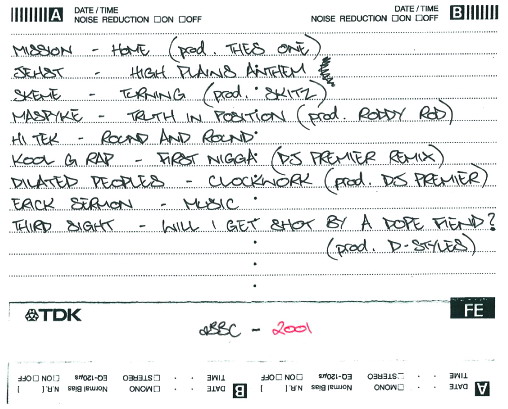 A DATE / TIME DATE / TIME B
NOISE REDUCTION □ON □OFF NOISE REDUCTION □ON □OFF
MISSION - HOME (prod. THES ONE)
JEHST - HIGH PLAINS ANTHEM
SKEME - TURNING (prod. SKITZ)
MASPYKE - TRUTH IN POSITION (prod. RODDY ROD)
HI TEK - ROUND AND ROUND
KOOL G RAP - FIRST NIGGA (DJ PREMIER REMIX)
DILATED PEOPLES - CLOCKWORK (prod. DJ PREMIER)
ERICK SERMON - MUSIC
THIRD SIGHT - WILL I GET SHOT BY A DOPE FIEND?
(prod. D-STYLES)
TDK FE
- 2001
A DATE TIME B DATE TIME
□MONO □STEREO □MONO □STEREO
Normal Bias EQ-120µs Normal Bias EQ-120µs
N.R. [ ] □ON □OFF N.R. [ ] □ON □OFF